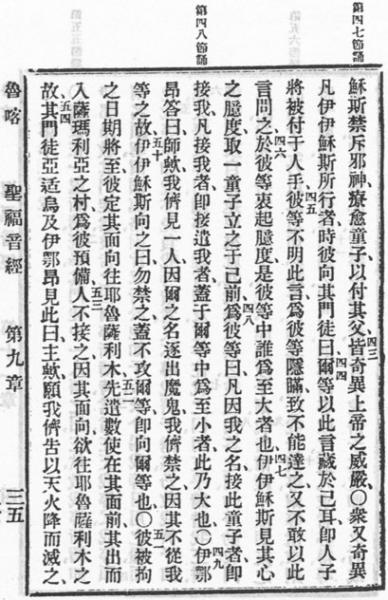 第四七節誦
第四八節誦
穌斯禁斥邪神、療愈童子、以付其父、四三皆奇異上帝之威嚴、○衆又奇異
凡伊伊穌斯所行者時、彼向其門徒曰、四四爾等以此言藏於己耳、即人子
將被付于人手、四五彼等不明此言、爲彼等隱瞞、致不能達之、又不敢以此
言問之、四六於彼等衷起臆度、是彼等中誰爲至大者也、四七伊伊穌斯見其心
之臆度、取一童子、立之于己前、四八爲彼等曰、凡因我之名接此童子者、即
接我、凡接我者、即接遣我者、蓋于爾等中爲至小者、此乃大也、○四九伊鄂
昂答曰、師歟、我儕見一人因爾之名逐出魔鬼、我儕禁之、因其不從我
等之故、五十伊伊穌斯向之曰、勿禁之、蓋不攻爾等、即向爾等也、○五一彼被拘
之日期將至、彼定其面向往耶魯薩利木、五二先遣數使在其面前、其出而
入薩瑪利亞之村、爲彼預備、五三人不接之、因其面向欲往耶魯薩利木之
故、五四其門徒亞适烏及伊鄂昂見此曰、主歟、願我儕吿以天火降而滅之、
魯喀 聖福音經 第九章 三五